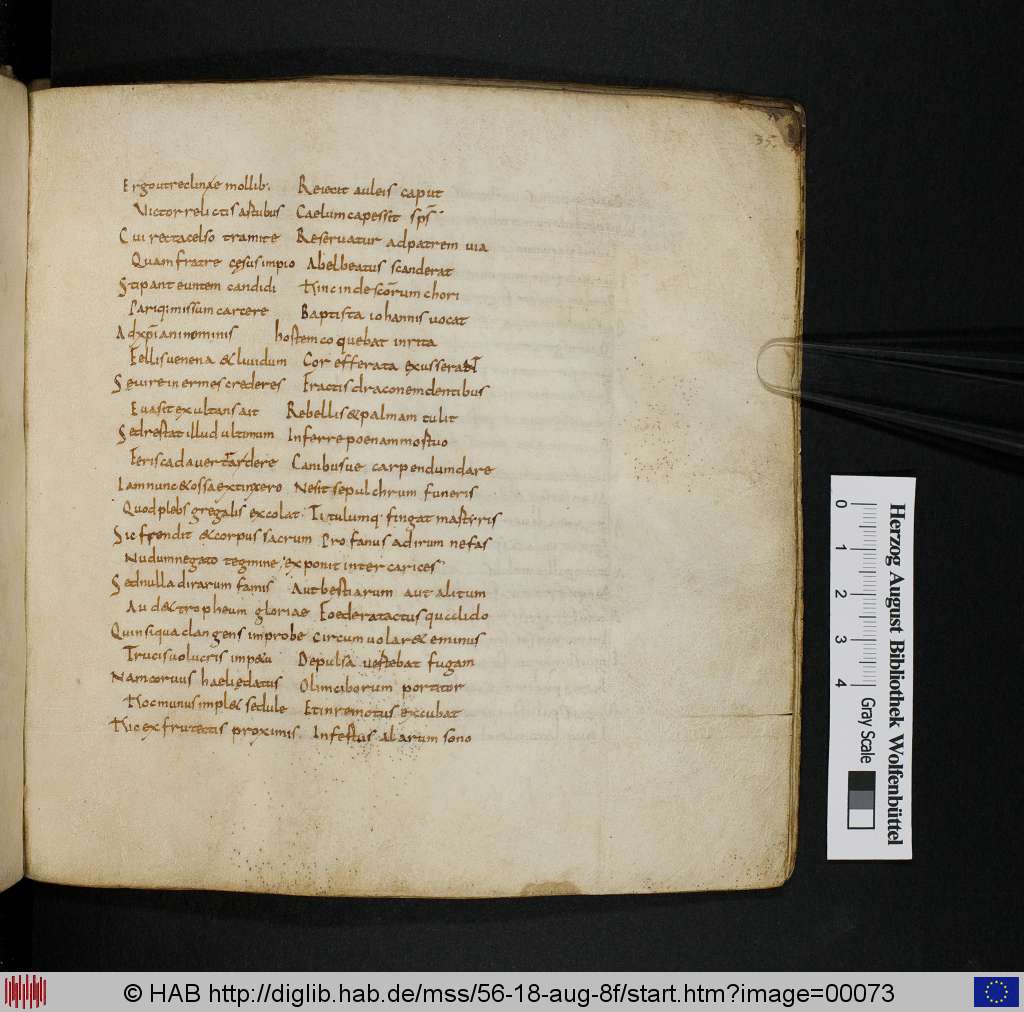 35.
Ergo ut reclinae mollib; Reiecit auleis caput
Victor relictis astubus Caelum capessit sp̅s
Cui recta celso tramite Reservatur ad patrem via
Quam fratre cęsus impio Abel beatus scanderat
Stipant euntem candidi Hinc inde scorum chori
Pariq; missum carcere Baptista iohannis vocat
Ad xp̅iani nominis hostem coquebat inrita
Fellis venena & lividum Cor efferata exusserat
Sevire inermes crederes Fractis draconem dentibus
Evasit exultans ait Rebellis & palmam tulit
Sed restat illud ultimum Inferre poenam mostuo
Feris cadaver tardere Canibusve carpendum dare
Iam nunc & ossa extinxero Ne sit sepulchrum funeris
Quod plebs gregalis excolat Titulumq. fingat mastyris
Sic frendit & corpus sacrum Profanus a dirum nefas
Nudum negato tegmine exponit inter carices
Sed nulla dirarum famis Aut bestiarum aut alitum
Aud& tropheum gloriae Foedera tactus
Quin siqua clangens improbe circumvolar& eminus
Trucis volucris Depulsa vestebat fugam
Nam corvus haelię datus Olim ciborum portitor
Hoc munus impl& sedule Et inremotus excubat
Hic ex frutectis proximis Infestus alarum sono
Herzog August Bibliothek Wolfenbüttel
0 1 2 3 4
Gray Scale
© HAB http://diglib.hab.de/mss/56-18-aug-8f/start.htm?image=00073